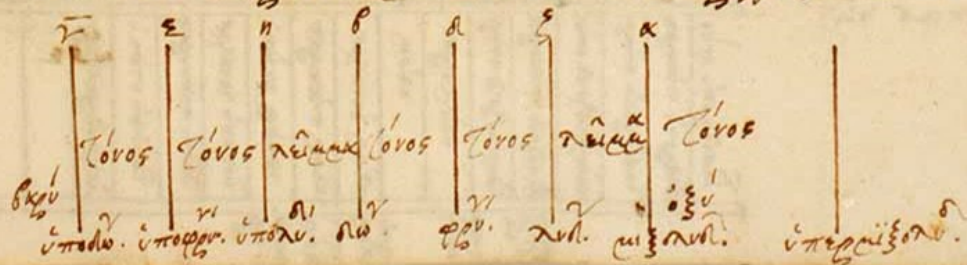 γ ε η β δ ξ α
τόνος τόνος λεῖμμα τόνος τόνος λεῖμμα τόνος
βαρύ ὀξύ
ὑποδω. ὑποφρυ. ὑπολυ. δω φρυ. λυδ. μιξολυδ. ὑπερμιξολυ.